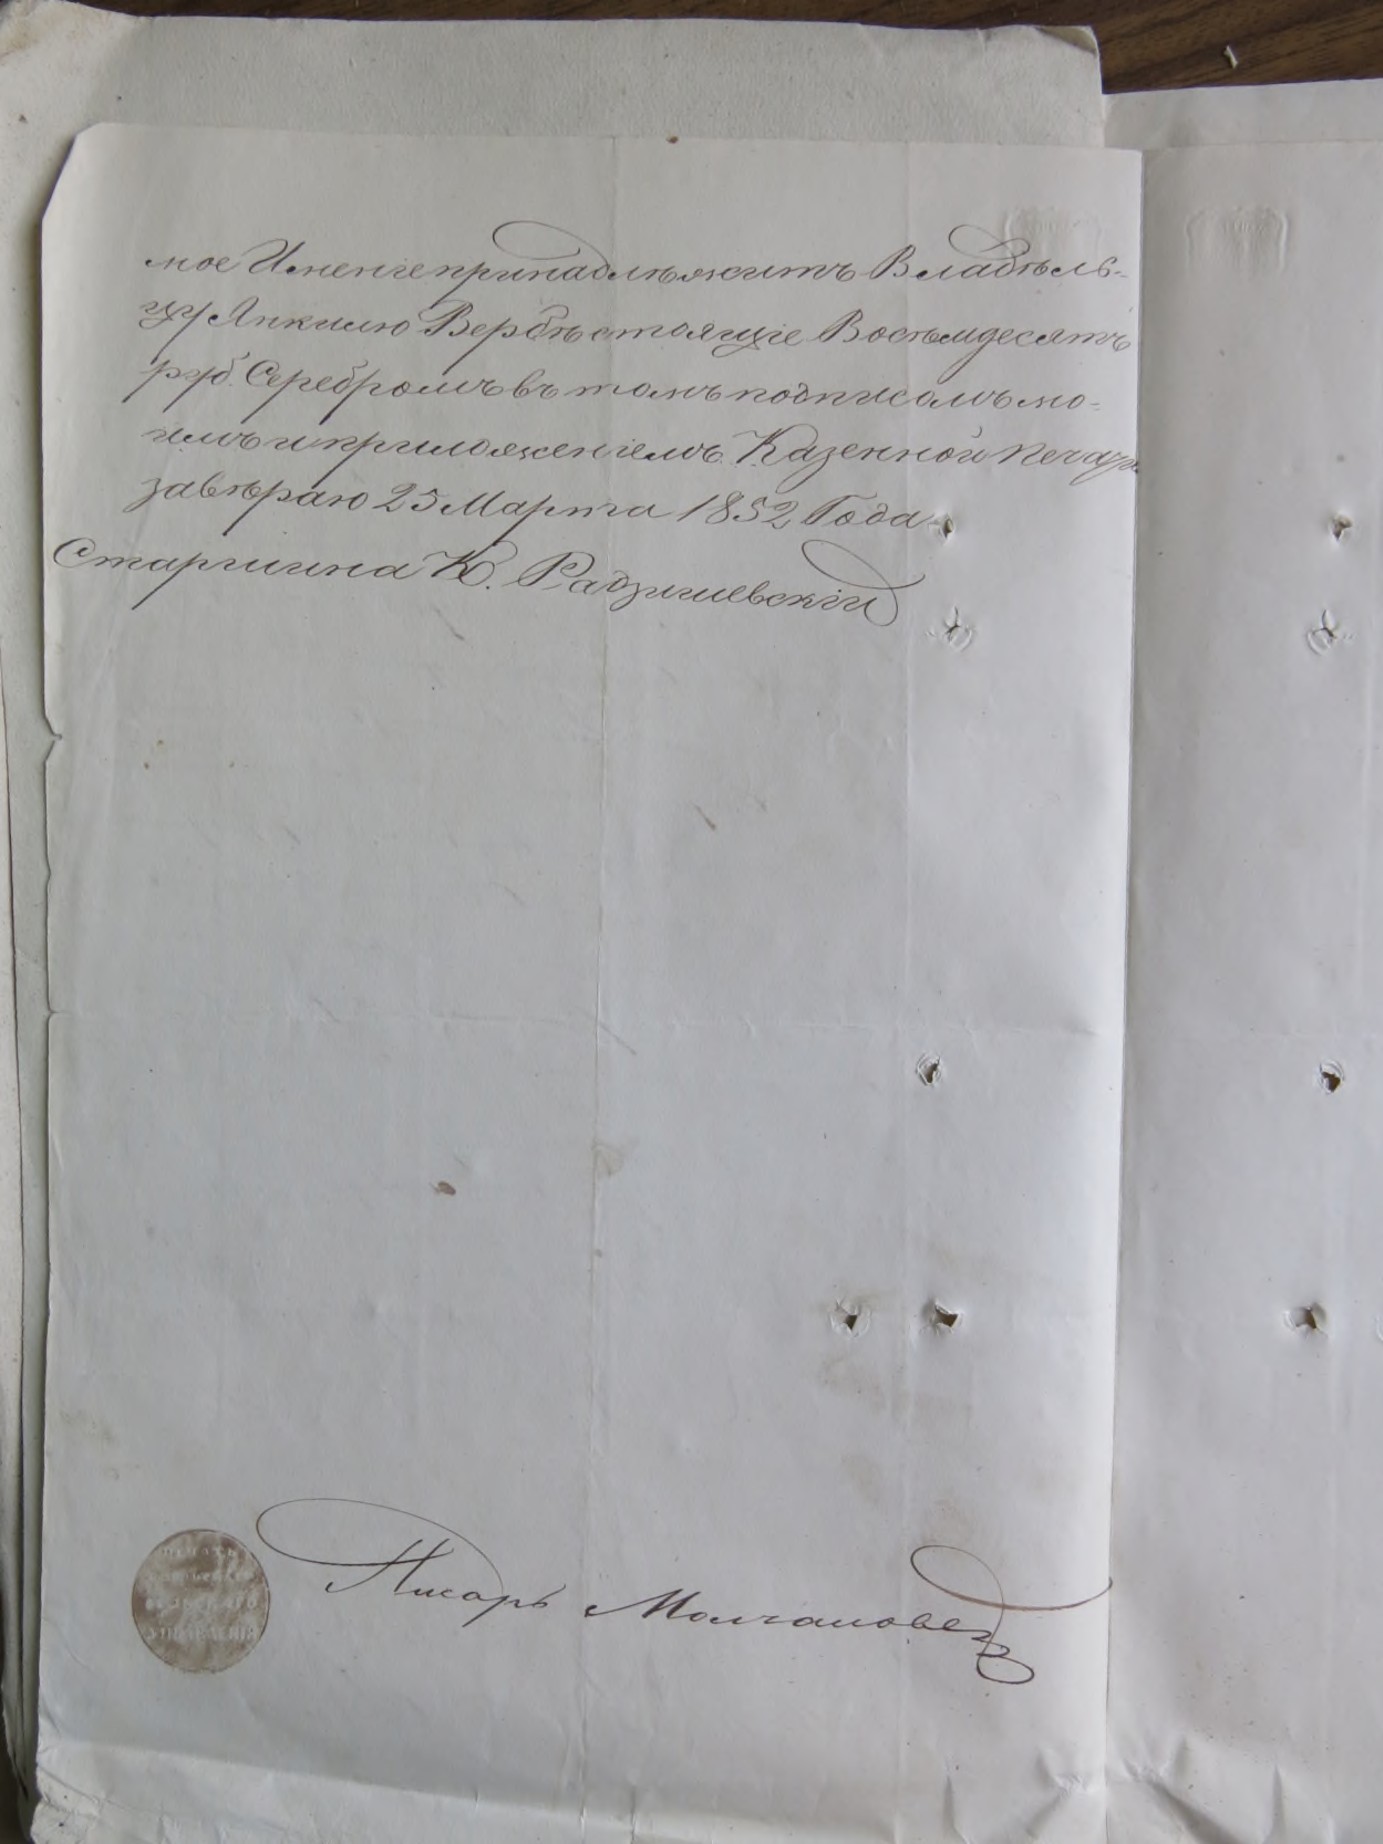 мое Именіе принадлѣжитъ Владѣль-
цу Янкилю Вербѣ стоящіе Восѣмдесятъ
руб. Серебромъ въ томъ подписомъ мо-
имъ и приложеніемъ Казенной печати
завѣраю 25 Марта 1852 Года
Старшина К. Радзишевскій
Писарь Молчановец
ПЕЧАТЬ
УПРАВЛЕНІЯ